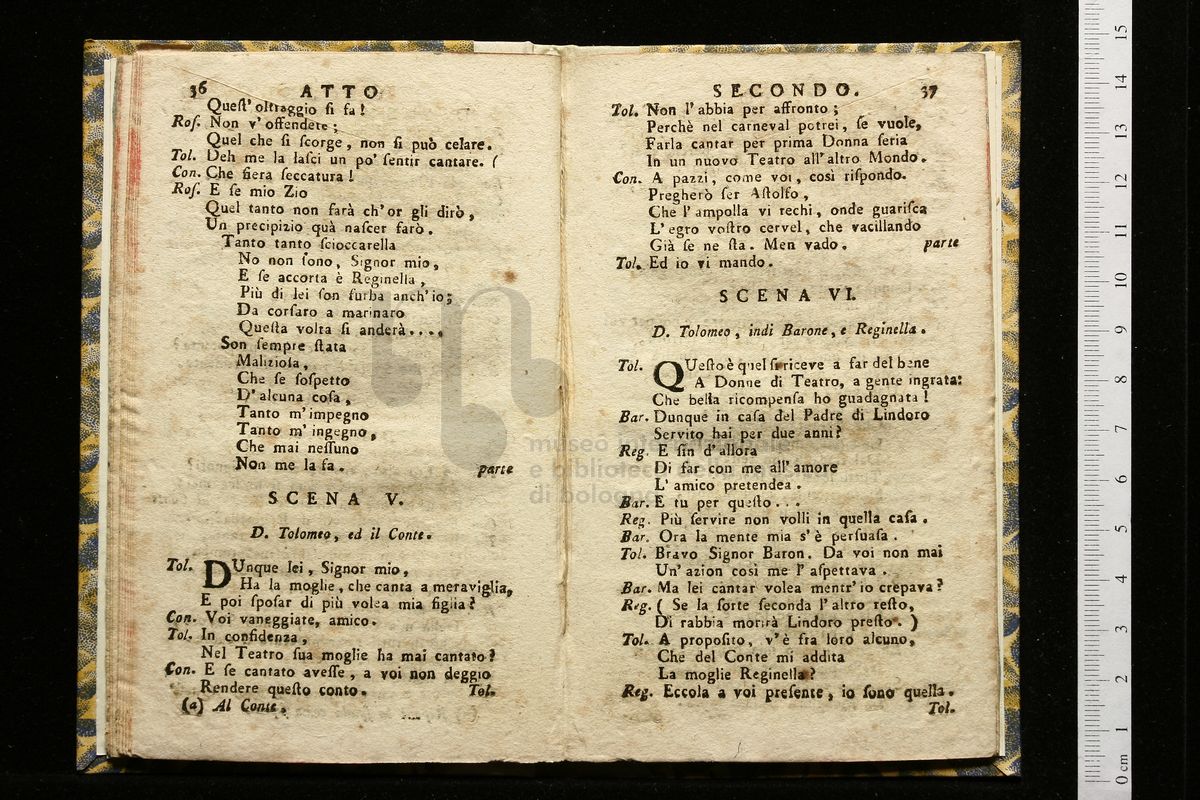 36 ATTO
Quest' oltraggio si fa!
Ros. Non v' offendete;
Quel che si scorge, non si può celare.
Tol. Deh me la lasci un po' sentir cantare. (
Con. Che fiera seccatura!
Ros. E se mio Zio
Quel tanto non farà ch' or gli dirò,
Un precipizio quà nascer farò.
Tanto tanto scioccarella
No non sono, Signor mio,
E se accorta è Reginella,
Più di lei son furba anch' io;
Da corsaro a marinaro
Questa volta si anderà....
Son sempre stata
Maliziosa,
Che se sospetto
D' alcuna cosa,
Tanto m' impegno
Tanto m' ingegno,
Che mai nessuno
Non me la fa. parte
SCENA V.
D. Tolomeo, ed il Conte.
Tol. DUnque lei, Signor mio,
Ha la moglie, che canta a meraviglia,
E poi sposar di più volea mia figlia?
Con. Voi vaneggiate, amico.
Tol. In confidenza,
Nel Teatro sua moglie ha mai cantato?
Con. E se cantato avesse, a voi non deggio
Rendere questo conto. Tol.
(a) Al Conte.
SECONDO. 37
Tol. Non l' abbia per affronto;
Perchè nel carneval potrei, se vuole,
Farla cantar per prima Donna seria
In un nuovo Teatro all' altro Mondo.
Con. A pazzi, come voi, così rispondo.
Pregherò ser Astolfo,
Che l' ampolla vi rechi, onde guarisca
L' egro vostro cervel, che vacillando
Già se ne sta. Men vado. parte
Tol. Ed io vi mando.
SCENA VI.
D. Tolomeo, indi Barone, e Reginella.
Tol. QUesto è quel si riceve a far del bene
A Donne di Teatro, a gente ingrata:
Che bella ricompensa ho guadagnata!
Bar. Dunque in casa del Padre di Lindoro
Servito hai per due anni?
Reg. E sin d' allora
Di far con me all' amore
L' amico pretendea.
Bar. E tu per questo...
Reg. Più servire non volli in quella casa.
Bar. Ora la mente mia s' è persuasa.
Tol. Bravo Signor Baron. Da voi non mai
Un' azion così me l' aspettava.
Bar. Ma lei cantar volea mentr' io crepava?
Reg. ( Se la sorte seconda l' altro resto,
Di rabbia morirà Lindoro presto. )
Tol. A proposito, v' è fra loro alcuno,
Che del Conte mi addita
La moglie Reginella?
Reg. Eccola a voi presente, io sono quella.
Tol.
museo
e bibliotec
di bologna
0 cm 1 2 3 4 5 6 7 8 9 10 11 12 13 14 15